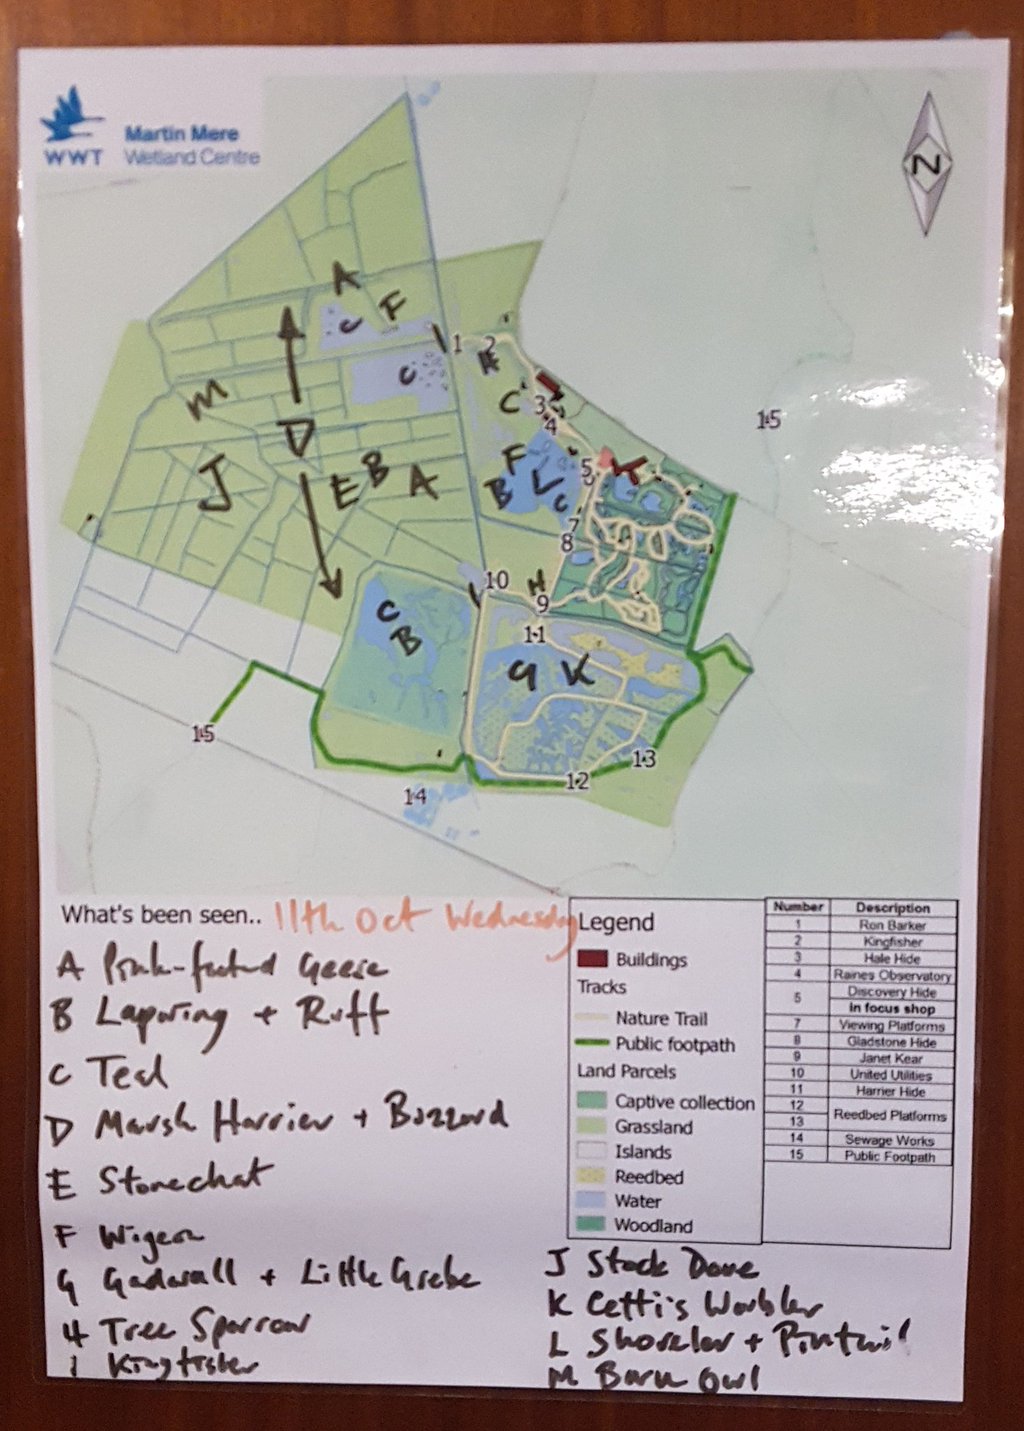 WWT
Martin Mere
Wetland Centre
N
A
F
C
1
2
H
C
M
C
3
4
15
D
F
5
J
E B A
B
L
C
7
8
10
H
9
C
B
11
G K
15
13
12
14
What's been seen.. 11th Oct Wednesday
A Pink-footed Geese
B Lapwing + Ruff
C Teal
D Marsh Harrier + Buzzard
E Stonechat
F Wigeon
G Gadwall + Little Grebe
H Tree Sparrow
I Kingfisher
J Stock Dove
K Cetti's Warbler
L Shoveler + Pintail
M Barn Owl
Legend
Buildings
Tracks
Nature Trail
Public footpath
Land Parcels
Captive collection
Grassland
Islands
Reedbed
Water
Woodland
Number Description
1 Ron Barker
2 Kingfisher
3 Hale Hide
4 Raines Observatory
5 Discovery Hide
in focus shop
7 Viewing Platforms
8 Gladstone Hide
9 Janet Kear
10 United Utilities
11 Harrier Hide
12
13 Reedbed Platforms
14 Sewage Works
15 Public Footpath